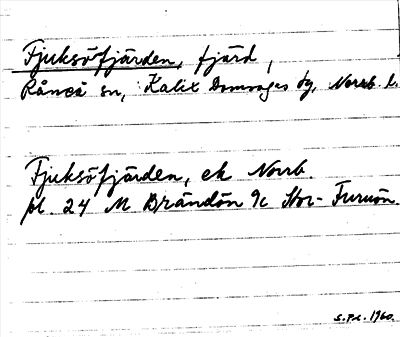 Fjuksöfjärden, fjärd,
Råneå sn, Kalix Domsagas tg, Norrb. l.
Fjuksöfjärden, ek Norrb.
pl. 24 M Brändön 9c Stor-Furuön.
S.Pd. 1960.